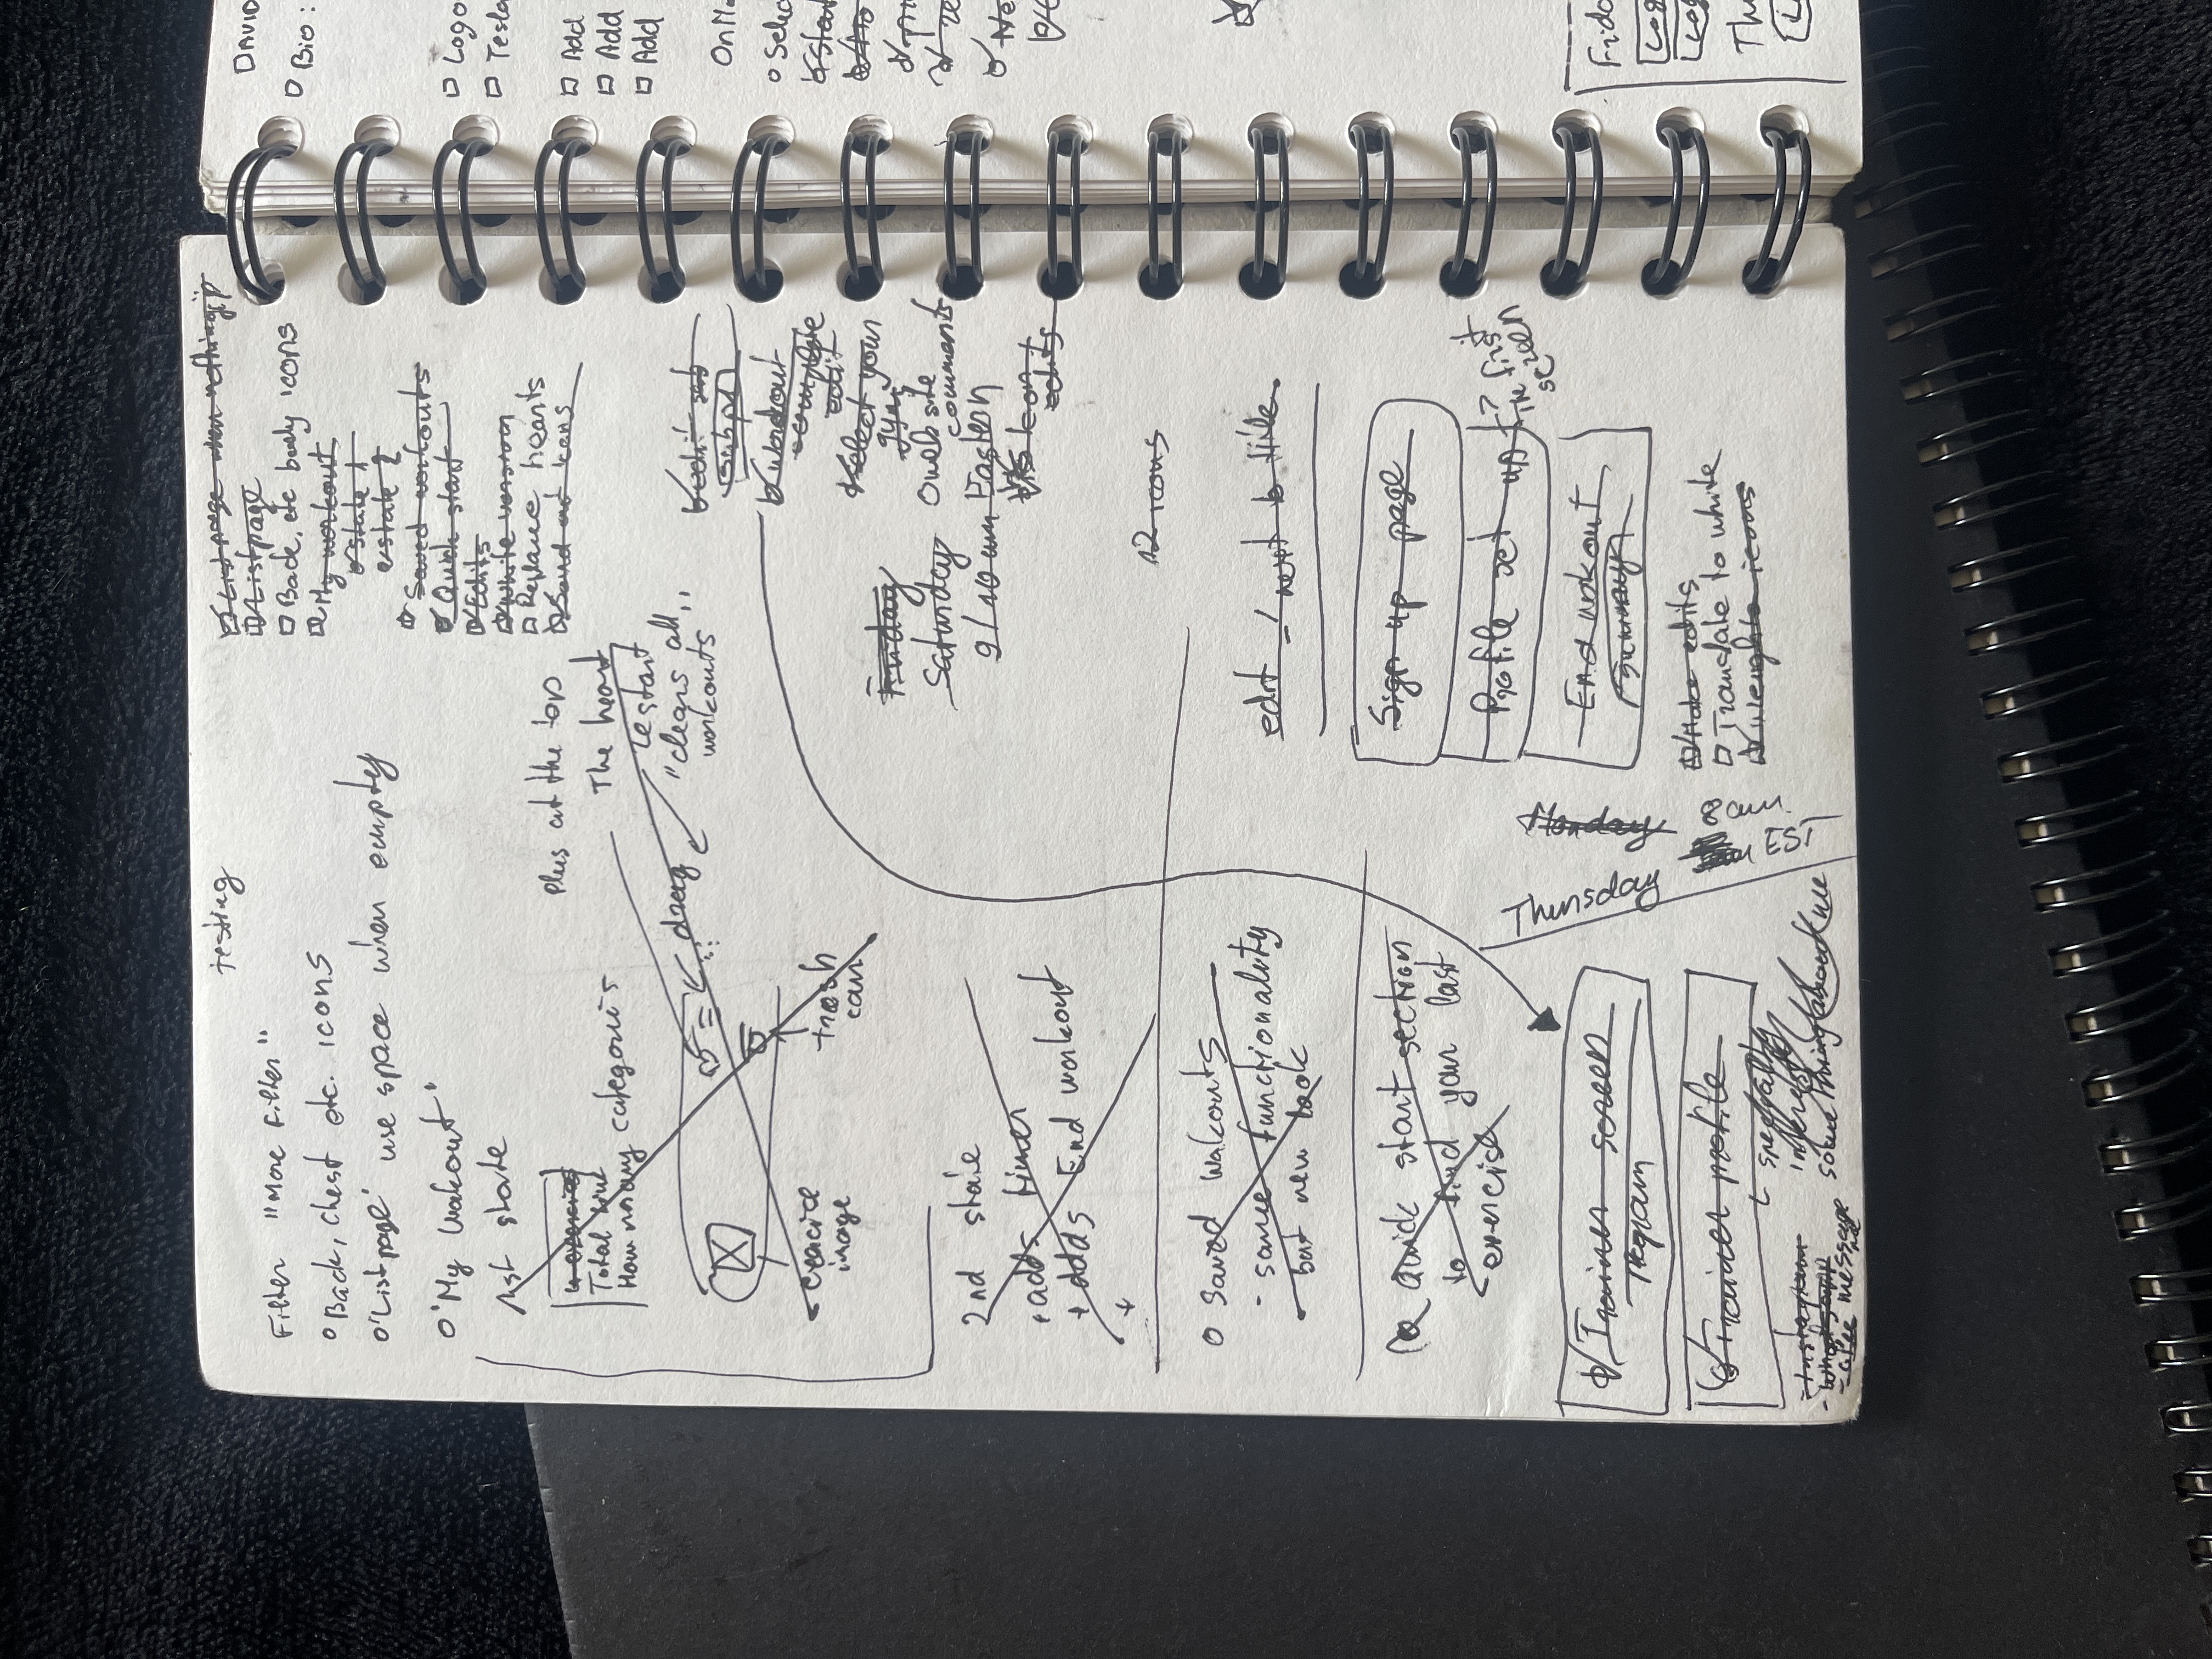 testing
Filter "More filter"
o Back, chest etc. icons
o 'List page' use space when empty
o 'My workout'
1st state
Total time
How many categoris
exercice
image
trash
can
drag
Plus at the top
The heart
restart
"clears all"
workouts
2nd state
adds timer
+ adds End workout
+
o Saved workouts
- same functionality
- but new look
Quick start section
to find your last
exercise
Trainer screen
Trainer profile
specialty
interests
something about me
- Instagram
- whatsapp
message
me
Thursday
Monday
8 am
EST
List page when nothing
List page
Back, etc body icons
My workout
state 1
state 2
Saved workouts
Quick start
Edits
White version
Replace hearts
Sound and icons
workout
complete
edit
Select your
gym
Onelbsite
comments
edits
Friday
Saturday
9/10 am Eastern
12 icons
edit = / next to title
Sign up page
Profile set up
first
screen
End workout
summary
edits
Translate to white
weights icons
DAVID
Bio:
Logo
Testa
Add
Add
Add
Frida
Log
Th